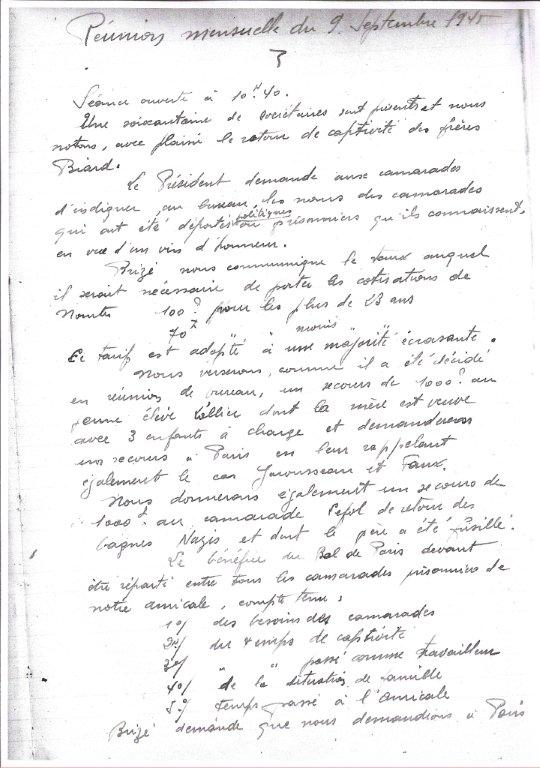 Réunion mensuelle du 9 Septembre 1945
Séance ouverte à 10h 40.
Une soixantaine de sociétaires sont présents et nous
notons, avec plaisir le retour de captivité des frères
Biard.
Le Président demande aux camarades
d'indiquer au bureau, les noms des camarades
politiques
qui ont été déportés ou prisonniers qu'ils connaissent,
en vue d'un vin d'honneur.
Brizé nous communique le taux auquel
il serait nécessaire de porter les cotisations de
Nantes 100f pour les plus de 23 ans
70f " " moins "
Ce tarif est adopté à une majorité écrasante.
Nous verserons, comme il a été décidé
en réunion de bureau, un secours de 1000f au
jeune élève dont la mère est veuve
avec 3 enfants à charge et demanderons
un secours à Paris en leur rappelant
également le cas Jarousseau et Faux.
Nous donnerons également un secours de
1000f au camarade de retour des
bagnes Nazis et dont le père a été fusillé.
Le bénéfice du Bal de Paris devant
être réparti entre tous les camarades prisonniers de
notre amicale, compte tenu :
1o/ des besoins des camarades
2o/ du temps de captivité
3o/ " " passé comme travailleur
4o/ de la situation de famille
5o/ temps passé à l'amicale
Brizé demande que nous demandions à Paris